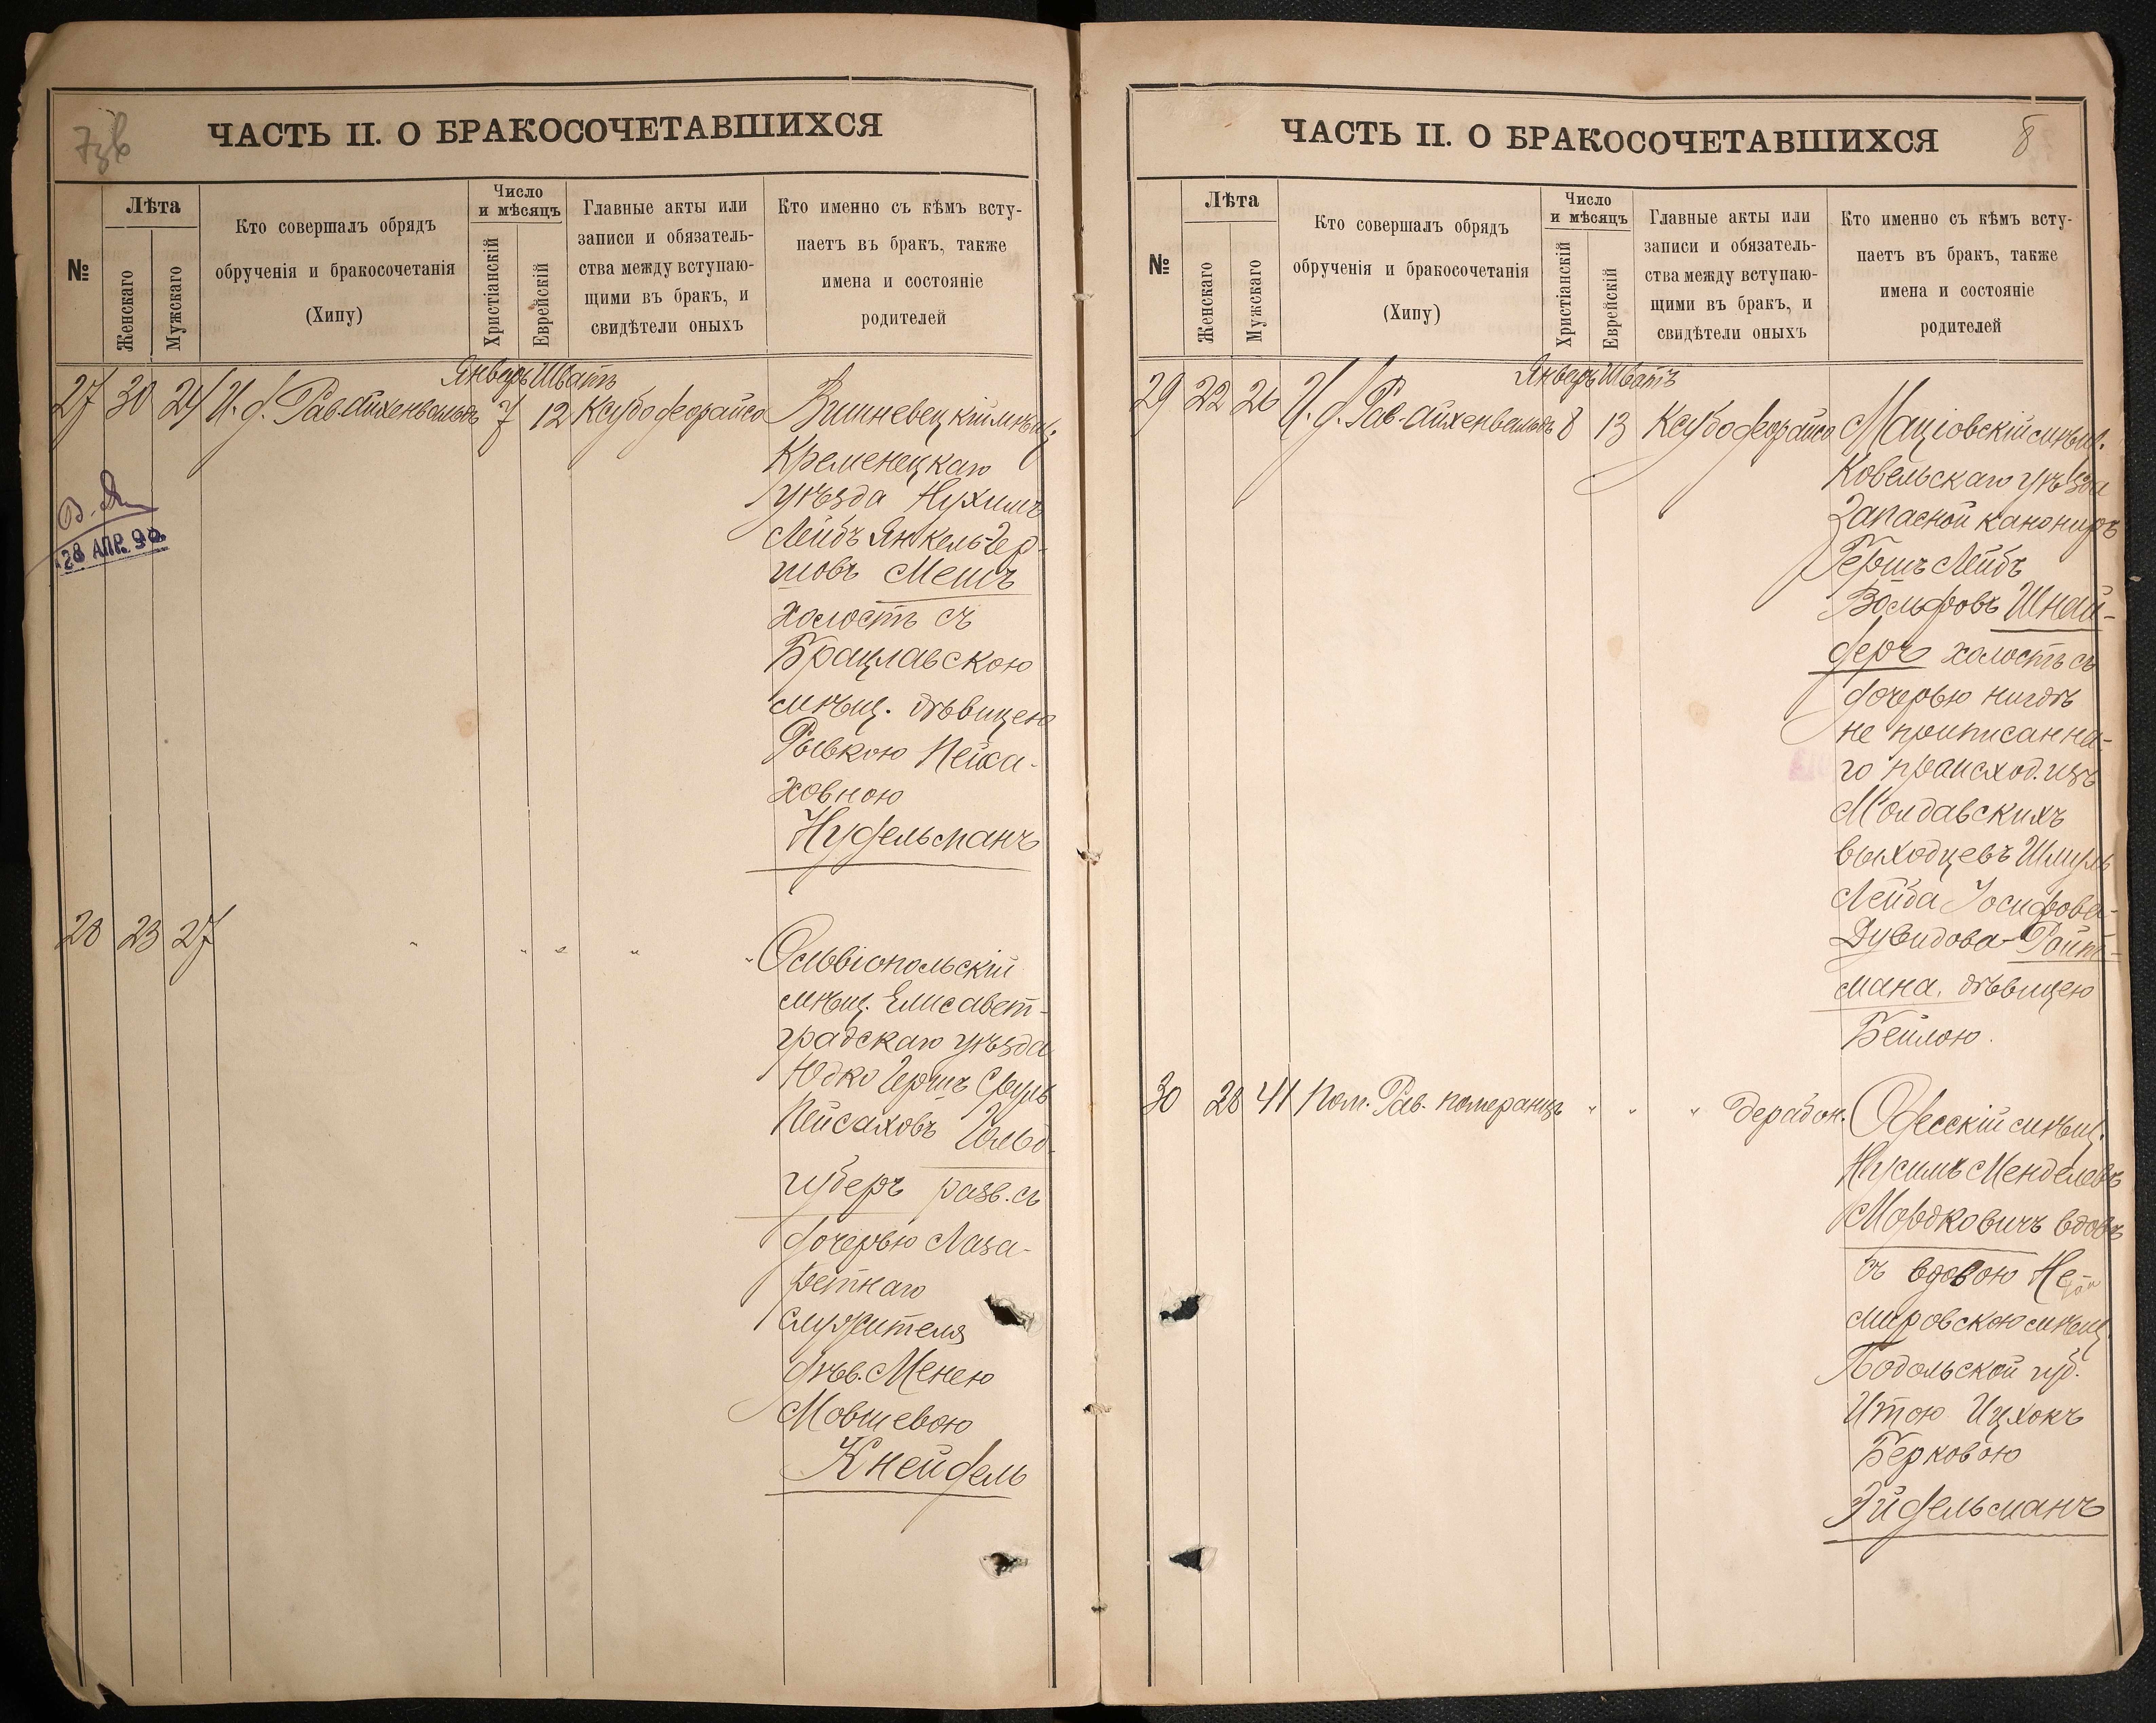 7 зв
ЧАСТЬ II. О БРАКОСОЧЕТАВШИХСЯ
№
Лѣта
Женскаго
Мужскаго
Кто совершалъ обрядъ
обрученія и бракосочетанія
(Хипу)
Число
и мѣсяцъ
Христіанскій
Еврейскій
Главные акты или
записи и обязатель-
ства между вступаю-
щими въ бракъ, и
свидѣтели оныхъ
Кто именно съ кѣмъ всту-
паетъ въ бракъ, также
имена и состояніе
родителей
Январь Шватъ
27 30 24 И. д. Рав. Айхенвальдъ 7 12 Ксубо деорайсо Вишневецкій мѣщ.
Кременецкаго
уѣзда Нухимъ
Лейбъ Янкель-Гер-
шовъ Мешъ
холостъ съ
Брацлавскою
мѣщ. дѣвицею
Рывкою Пейса-
ховною
Нудельманъ
28 АПР. 90
28 23 27 " " " " " Ольвіопольскій
мѣщ. Елисавет-
градскаго уѣзда
Юдко Гершъ Сруль
Пейсаховъ Гольд-
губеръ разв. съ
дочерью Лаза-
ретнаго
служителя
дѣв. Менею
Мовшевою
Кнейдель
8
ЧАСТЬ II. О БРАКОСОЧЕТАВШИХСЯ
№
Лѣта
Женскаго
Мужскаго
Кто совершалъ обрядъ
обрученія и бракосочетанія
(Хипу)
Число
и мѣсяцъ
Христіанскій
Еврейскій
Главные акты или
записи и обязатель-
ства между вступаю-
щими въ бракъ, и
свидѣтели оныхъ
Кто именно съ кѣмъ всту-
паетъ въ бракъ, также
имена и состояніе
родителей
Январь Шватъ
29 22 26 И. д. Рав. Айхенвальдъ 8 13 Ксубо деорайсо Маціовскій мѣщ.
Ковельскаго уѣзда
Запасной канониръ
Гершъ Лейбъ
Вольфовъ Шнай-
деръ холостъ съ
дочерью нигдѣ
не приписанна-
го происход. изъ
Молдавскихъ
выходцевъ Шмуль
Лейба Іосифова-
Дувидова-Ройт-
мана, дѣвицею
Бейлою.
30 28 41 Пом. Рав. Померанцъ " " " дерабон. Одесскій мѣщ.
Нусимъ Менделевъ
Мордковичъ вдовъ
съ вдовою Не-
мировскою мѣщ.
Подольской губ.
Итою Ицхокъ
Берковою
Эйдельманъ